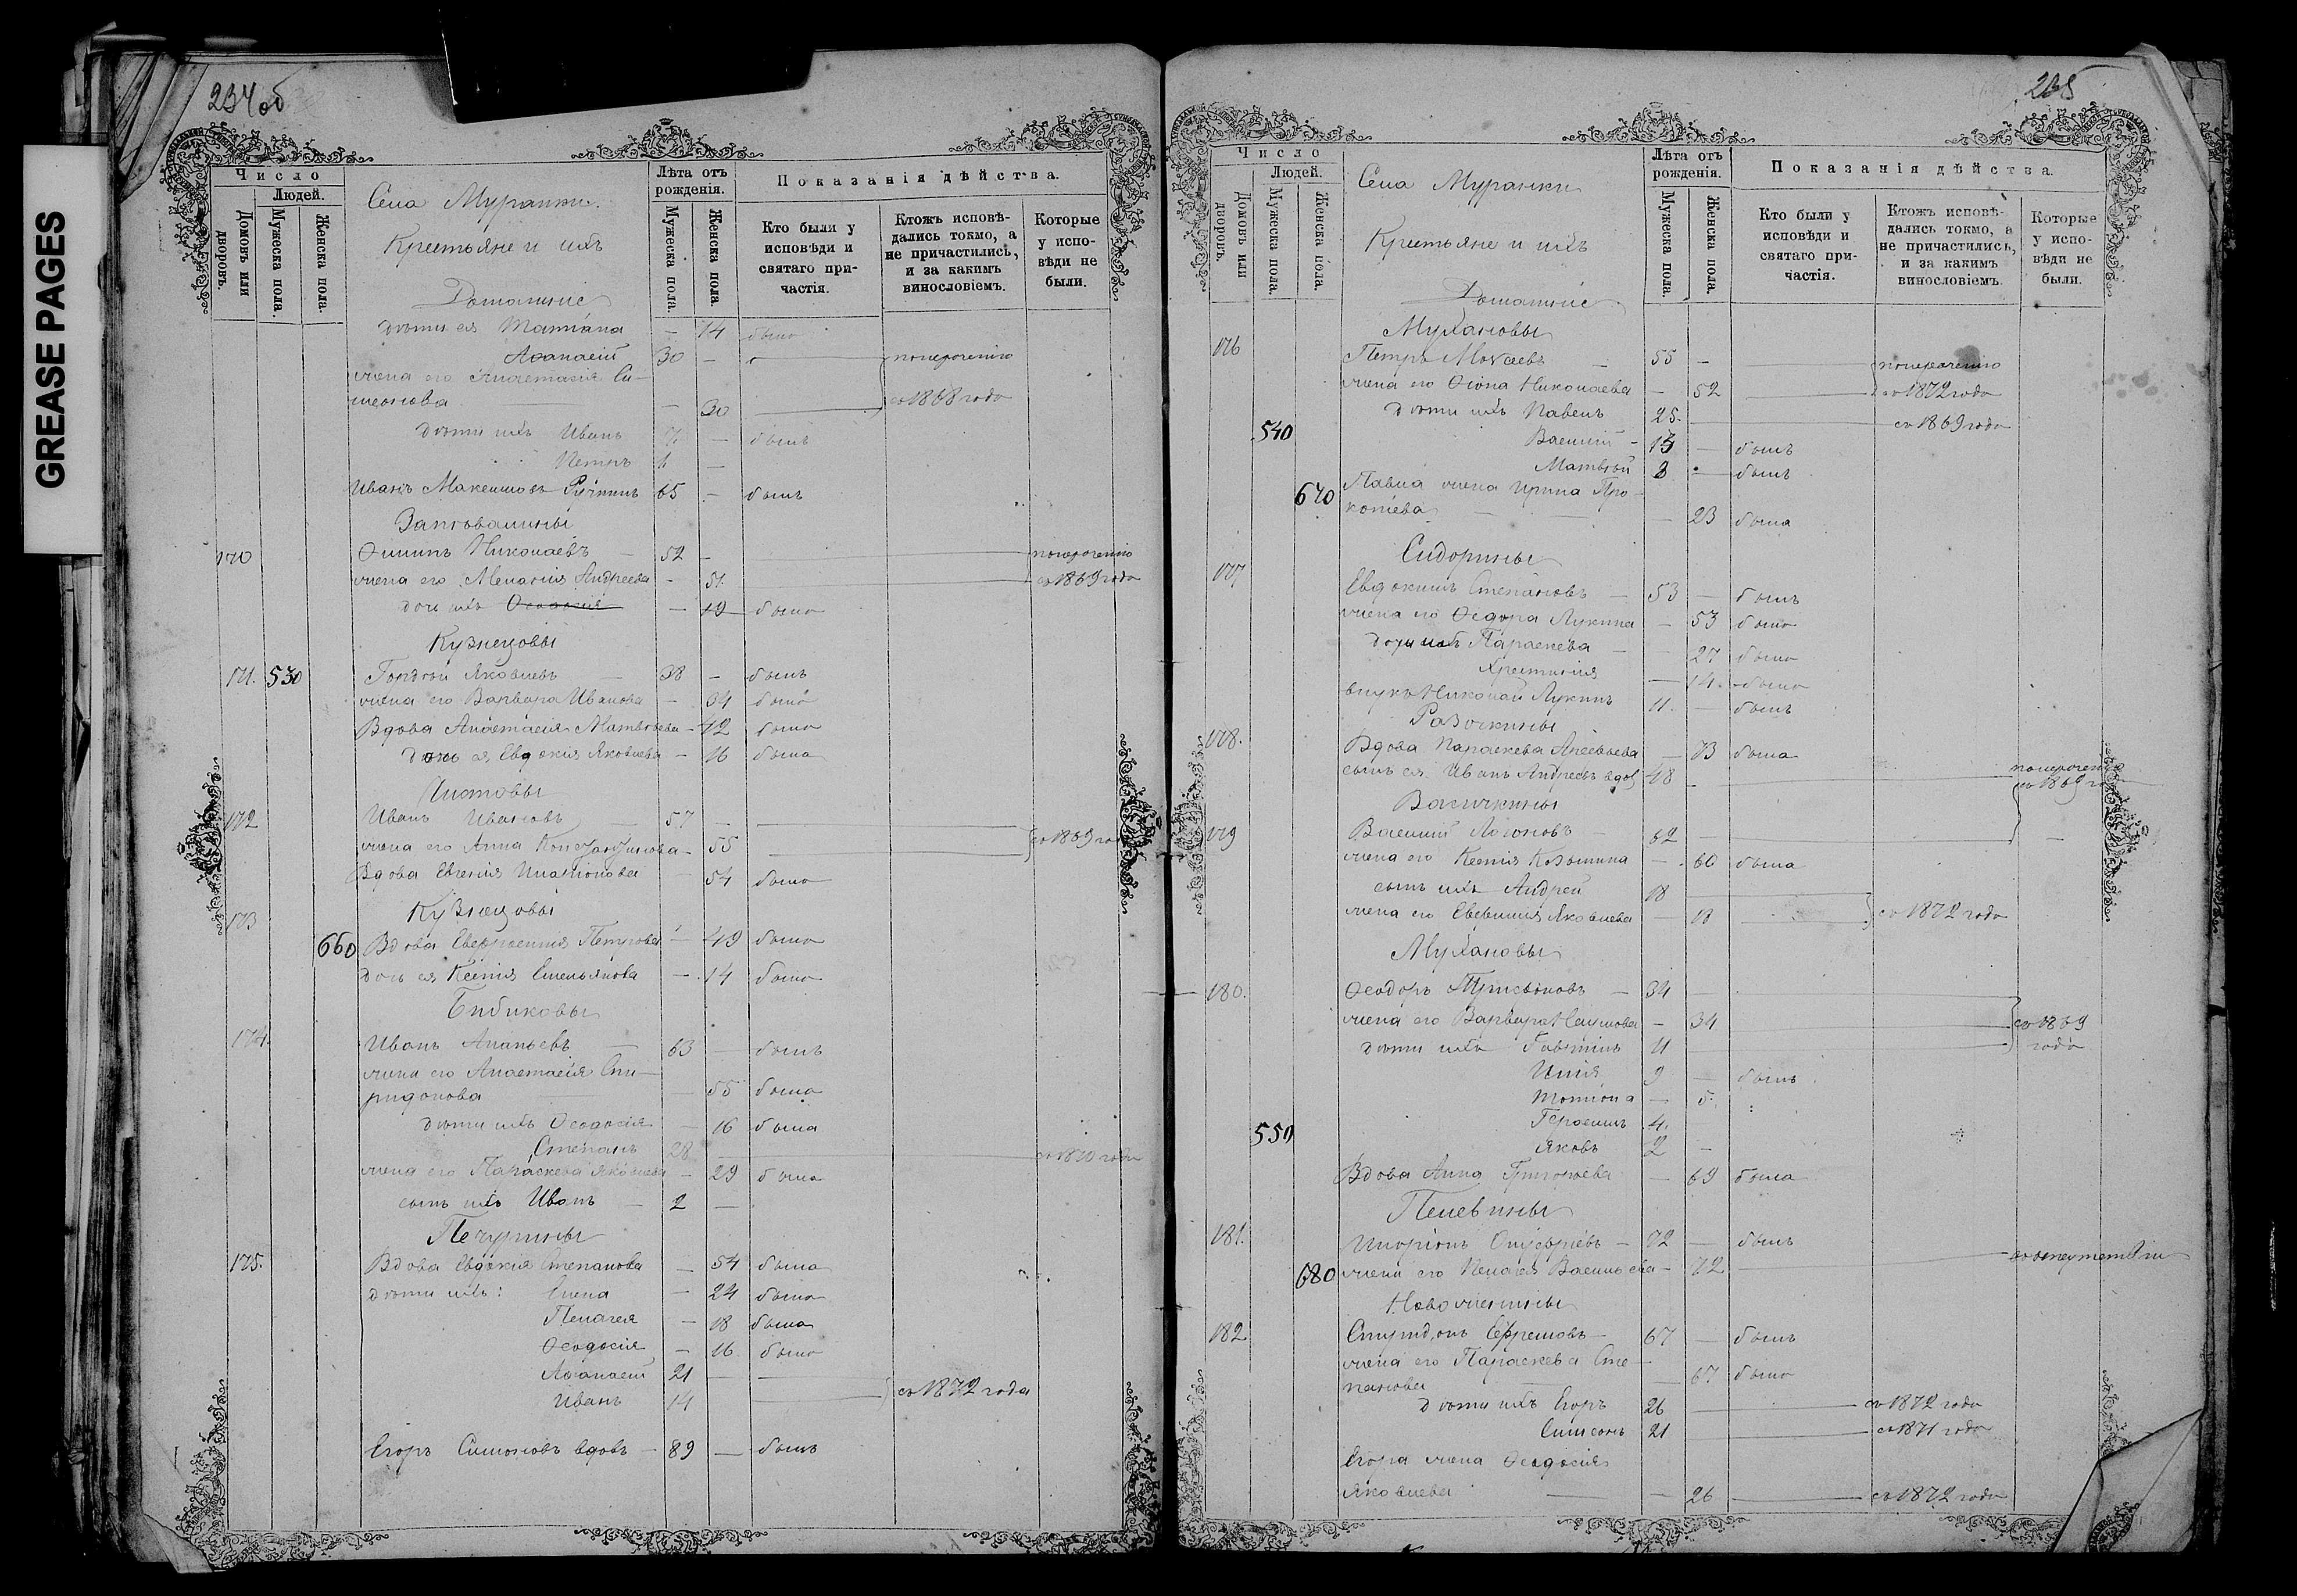 GREASE PAGES
234об
Число
Людей.
Домовъ или дворовъ.
Мужеска пола.
Женска пола.
Села Муранки.
Крестьяне и ихъ
Домашніе
Лѣта отъ рожденія.
Мужеска пола.
Женска пола.
Показанія дѣйства.
Кто были у исповѣди и святаго причастія.
Ктожъ исповѣдались токмо, а не причастились, и за какимъ винословіемъ.
Которые у исповѣди не были.
дѣти ея Татіана — 14 была
Аѳанасій 30 — по нерачению
жена его Анастасія Си-
меонова — 30 съ 1868 года
дѣти ихъ Иванъ 7 — былъ
Петръ 1 —
Иванъ Максимовъ 65 — былъ
170 Филипъ Николаевъ 52 — по нерачению
жена его Меланія Андреева — 51 съ 1869 года
дочь ихъ Ѳеодосія — 19 была
Кузнецовы
171. 530 Гордѣй Яковлевъ 38 — былъ
жена его Варвара Иванова — 34 была
Вдова Анастасія Матвѣева — 42 была
дочь ея Евдокія Яковлева — 16 была
172 Иванъ Ивановъ 57 —
жена его Анна Константинова — 55 съ 1869 го
Вдова Евгенія — 54 была
Кузнецовы
173 660 Вдова Евфросинія Петрова — 49 была
дочь ея Ксенія Емельянова — 14 была
Бибиковы
174. Иванъ Ананьевъ 63 — былъ
жена его Анастасія Спи-
ридонова — 55 была
дѣти ихъ Ѳеодосія — 16 была
Степанъ 28 съ 1870 года
жена его Параскева Яковлева — 29 была
сынъ ихъ Иванъ 2 —
Печурины
175. Вдова Евдокія Степанова — 54 была
дѣти ихъ: Елена — 24 была
Пелагея — 18 была
Ѳеодосія — 16 была
Аѳанасій 21 —
Иванъ 14 съ 1872 года
Егоръ Симоновъ вдовъ 89 — былъ
235
Число
Людей.
Домовъ или дворовъ.
Мужеска пола.
Женска пола.
Села Муранки
Крестьяне и ихъ
Домашніе
Лѣта отъ рожденія.
Мужеска пола.
Женска пола.
Показанія дѣйства.
Кто были у исповѣди и святаго причастія.
Ктожъ исповѣдались токмо, а не причастились, и за какимъ винословіемъ.
Которые у исповѣди не были.
Мухановы
176 Петръ 55 — по нерачению
жена его Николаева — 52 съ 1872 года
дѣти ихъ Павелъ 25. съ 1869 года
540 Василій — былъ
Матвѣй 8 — былъ
670 Павла жена Ирина Про-
копіева — 23 была
Сидорины
177 Евдокимъ Степановъ 53 — былъ
жена его Ѳедора Лукина — 53 была
дочи ихъ Параскева — 27 была
Христинія — 14. была
внукъ Николай Лукинъ 11. — былъ
178. Вдова Параскева — 73 была
сынъ ея Иванъ Андреевъ вдов 48 — по нерачению
съ 1869
Васичкины
179 Василій 62 —
жена его Ксенія Козьмина — 60 была
сынъ ихъ Андрей 18
жена его Яковлева — 18 съ 1872 года
Мухановы
180. Ѳеодоръ 34 —
жена его Варвара Наумова — 34 съ 1869
дѣти ихъ Гавріилъ 11 года
Илія 9 — былъ
Татіана — 5.
Герасимъ 4.
550 Яковъ 2 —
Вдова Анна Григорьева — 69 была
Пелевины
181. Иларіонъ 72 — былъ
680 жена его Пелагея Васильева — 72
182 Спиридонъ Ефремовъ — 67 — былъ
жена его Параскева Сте-
панова — 67 была
дѣти ихъ Егоръ 26 съ 1872 года
Симеонъ 21 съ 1871 года
Егора жена Ѳеодосія
Яковлева — 26 съ 1872 года